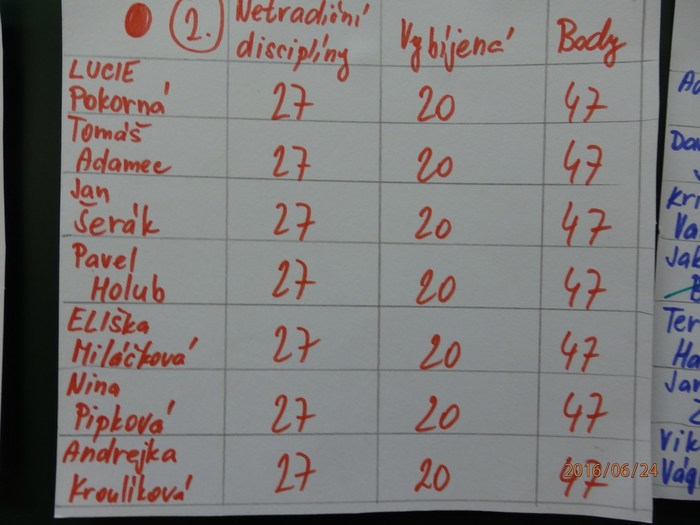 2. Netradiční disciplíny Vybíjená Body
LUCIE Pokorná 27 20 47
Tomáš Adamec 27 20 47
Jan Šerák 27 20 47
Pavel Holub 27 20 47
Eliška Miláčková 27 20 47
Nina Pipková 27 20 47
Andrejka Kroulíková 27 20 47
2016/06/24